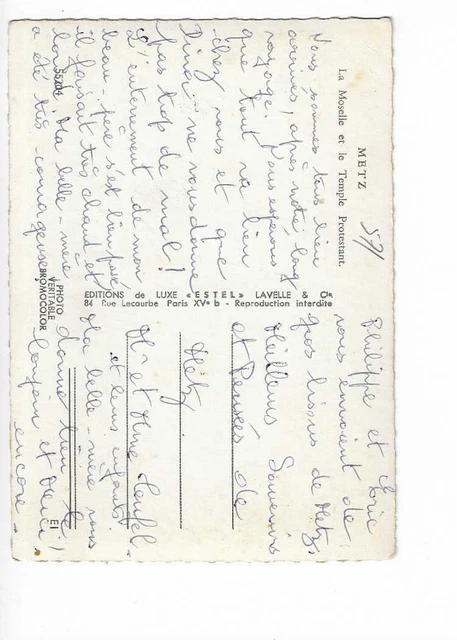 METZ
57/
La Moselle et le Temple Protestant.
Nous sommes tous bien
arrivés, après notre long
voyage. Nous espérons
que tout va bien
chez vous et que
Dina ne vous donne
pas trop de mal!
L'enterrement de mon
beau-père s'est bien passé
il faisait très chaud et
Ma belle-mère
a été très courageuse
55204
EDITIONS de LUXE « ESTEL » LAVELLE & Cie
84 Rue Lecourbe Paris XVe b - Reproduction interdite
PHOTO
VERITABLE
BROMOCOLOR
Philippe et Eric
vous envoient de
gros bisous de Metz,
Meilleurs Souvenirs
et Pensées de
Metz.
Mr et Mme
et leurs enfants
Ma belle-mère vous
donne bien le
bonjour et Merci
encore.
E1